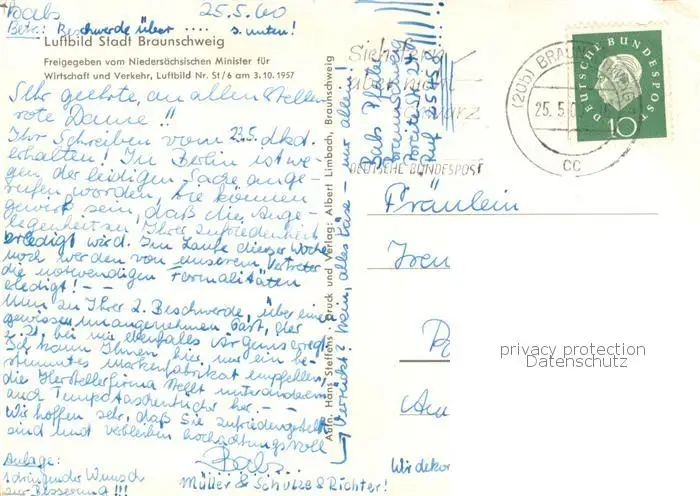 Babs 25.5.60
Betr.: Beschwerde über .... s. unten!
Luftbild Stadt Braunschweig
Freigegeben vom Niedersächsischen Minister für
Wirtschaft und Verkehr, Luftbild Nr. St/6 am 3.10.1957
Sehr geehrte, an allen Stellen
rote Dame!!
Ihr Schreiben vom 23.5. dkd.
erhalten! In Berlin ist we-
gen der leidigen Sache ange-
rufen worden, Sie können
gewiß sein, daß die Ange-
legenheit zu Ihrer Zufriedenheit
erledigt wird. Im Laufe dieser Woche
noch werden von unserem Vertreter
die notwendigen Formalitäten
erledigt! - -
Nun zu Ihrer 2. Beschwerde, über einen
gewissen unangenehmen Gast, der
z. Zt. bei mir ebenfalls Ärgernis erregt
Ich kann Ihnen hier nur ein be-
stimmtes Markenfabrikat empfehlen,
die Herstellerfirma stellt unter anderem
auch Tempotaschentücher her. - -
Wir hoffen sehr, daß Sie zufriedengestellt
sind und verbleiben hochachtungsvoll
Babs
Müller & Schulze & Richter!
Anlage:
1 dringender Wunsch
zur Besserung!!!
Aufn. Hans Steffens · Druck und Verlag: Albert Limbach, Braunschweig
Verrückt? Nein, alles Käse - nur allein!
Babs
Braunschweig
Ruf
(20b) BRAUNSCHWEIG
25.5.60
cc
DEUTSCHE BUNDESPOST
DEUTSCHE BUNDESPOST
10
Fräulein
Iren
Wir dekor
privacy protection
Datenschutz